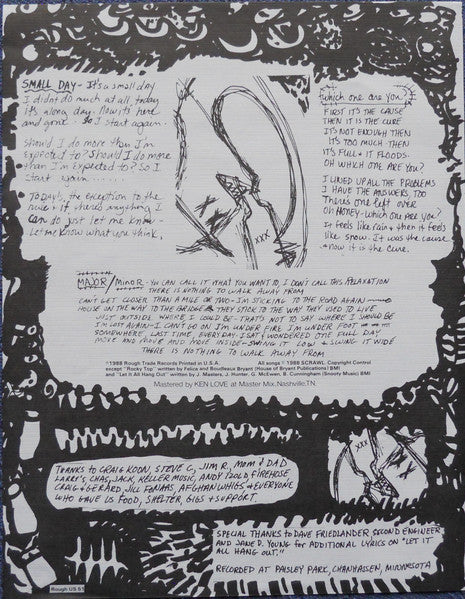 SMALL DAY - It's a small day
I didn't do much at all today
it's a long day. Now it's here
and gone. So I start again.
Should I do more than I'm
expected to? Should I do more
than I'm expected to? So I
start again.......
Today's the exception to the
rule. if there's anything I
can do just let me know.
Let me know what you think.
which one are you?
FIRST IT'S THE CAUSE
THEN IT IS THE CURE
IT'S NOT ENOUGH THEN
IT'S TOO MUCH THEN
IT'S FULL & IT FLOODS.
OH WHICH ONE ARE YOU?
I LINED UP ALL THE PROBLEMS
I HAVE THE ANSWERS TOO
There's one left over
OH HONEY - which one are you?
It feels like rain & then it feels
like snow. It was the cause
& now it is the cure.
XXX
MAJOR/MINOR - YOU CAN CALL IT WHAT YOU WANT TO, I DON'T CALL THIS RELAXATION
THERE IS NOTHING TO WALK AWAY FROM
CAN'T GET CLOSER THAN A MILE OR TWO - I'M STICKING TO THE ROAD AGAIN
HOUSE ON THE WAY TO THE BRIDGE & THEY STICK TO THE WAY THEY USED TO LIVE
JUST OUTSIDE WHERE I COULD BE - THAT'S NOT TO SAY WHERE I SHOULD BE
I'M LOST AGAIN - I CAN'T GO ON I'M UNDER FIRE I'M UNDER FOOT
SOMEWHERE LAST TIME, EVERYDAY I SAT & WONDERED ONE FULL DAY
MORE AND MORE AND MORE INSIDE - SWING IT LOW & SWING IT WIDE
THERE IS NOTHING TO WALK AWAY FROM
℗1988 Rough Trade Records Printed in U.S.A. All songs © 1988 SCRAWL Copyright Control
except "Rocky Top" written by Felice and Boudleaux Bryant (House of Bryant Publications) BMI
and "Let It All Hang Out" written by J. Masters, J. Hunter, G. McEwen, B. Cunningham (Snooty Music) BMI
Mastered by KEN LOVE at Master Mix, Nashville, TN.
THANKS TO CRAIG KOON, STEVE C, JIM R, MOM & DAD
LARRY'S, CHAS, JACK, KELLER MUSIC, ANDY IZOLD, FIREHOSE
CRAIG & GERARD, JILL FONAAS, AFGHAN WHIGS & EVERYONE
WHO GAVE US FOOD, SHELTER, GIGS & SUPPORT.
XXX
SPECIAL THANKS TO DAVE FRIEDLANDER SECOND ENGINEER
AND JANE D. YOUNG FOR ADDITIONAL LYRICS ON "LET IT
ALL HANG OUT."
RECORDED AT PAISLEY PARK, CHANHASSEN, MINNESOTA
Rough US 51